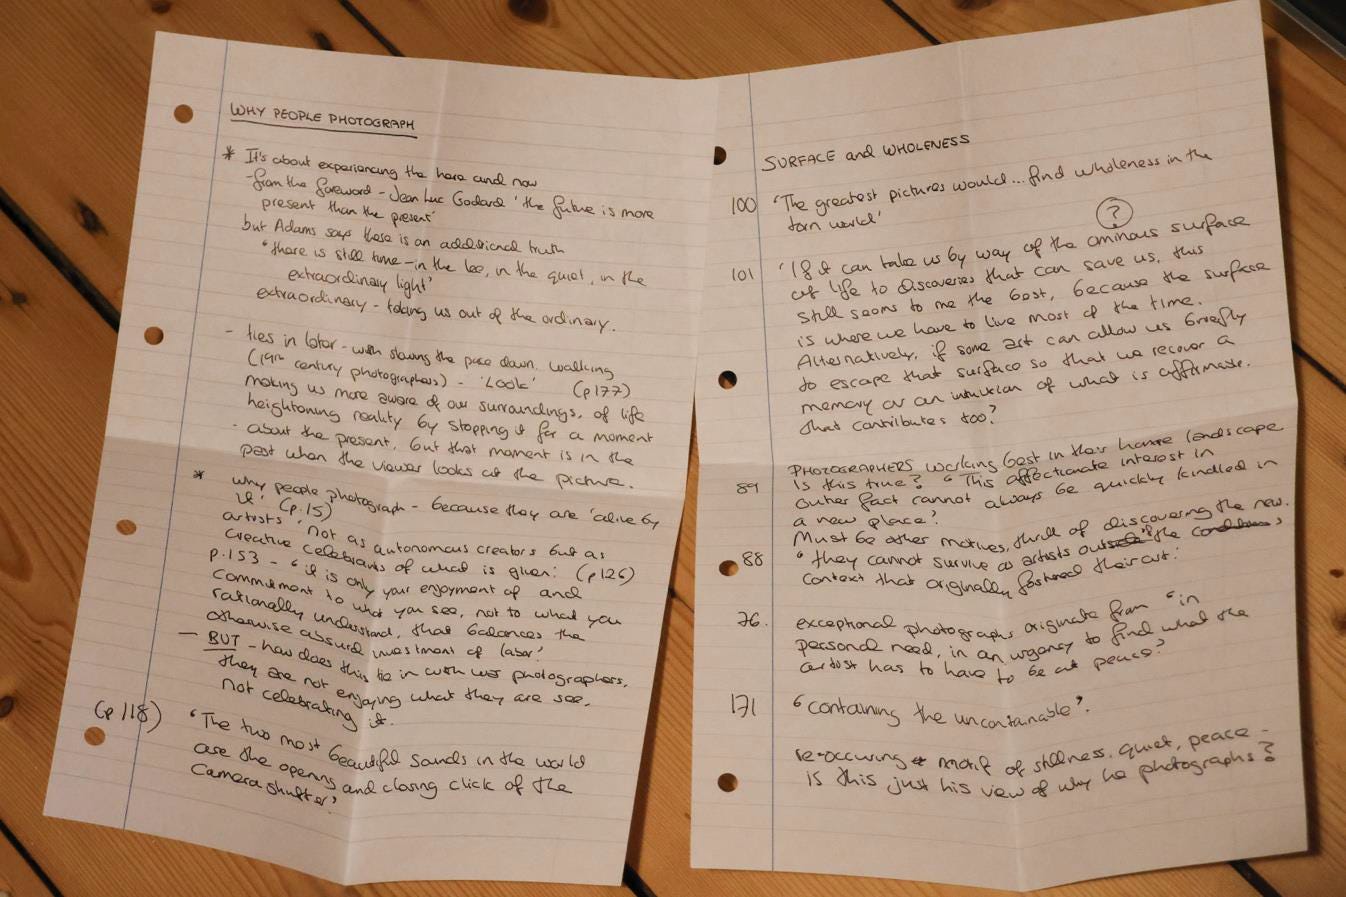 WHY PEOPLE PHOTOGRAPH
* It's about experiencing the here and now
-from the foreword - Jean Luc Godard 'the future is more
present than the present'
but Adams says there is an additional truth
"there is still time - in the lee, in the quiet, in the
extraordinary light'
extraordinary - taking us out of the ordinary.
- ties in later - with slowing the pace down. walking
(19th century photographers) - 'Look' (p177)
making us more aware of our surroundings, of life
heightening reality by stopping it for a moment
- about the present, but that moment is in the
past when the viewer looks at the picture.
* why people photograph - because they are 'alive by
it' (p.15)
artists 'not as autonomous creators but as
creative celebrants of what is given' (p126)
p.153 - "it is only your enjoyment of and
commitment to what you see, not to what you
rationally understand, that balances the
otherwise absurd investment of labor'
- BUT - how does this tie in with war photographers,
they are not enjoying what they are see,
not celebrating it.
(p118) 'The two most beautiful sounds in the world
are the opening and closing click of the
camera shutter'
SURFACE and WHOLENESS
100 'The greatest pictures would... find wholeness in the
torn world'
?
101 'If it can take us by way of the ominous surface
of life to discoveries that can save us, this
still seems to me the best, because the surface
is where we have to live most of the time.
Alternatively, if some art can allow us briefly
to escape that surface so that we recover a
memory or an intuition of what is affirmable.
that contributes too?
PHOTOGRAPHERS working best in their home landscape
89 Is this true? "This affectionate interest in
outer fact cannot always be quickly kindled in
a new place'
Must be other motives, thrill of discovering the new.
88 "they cannot survive as artists outside the
context that originally fostered their art'
76. exceptional photographs originate from "in
personal need, in an urgency to find what the
artist has to have to be at peace'
171 "containing the uncontainable'.
re-occuring motif of stillness, quiet, peace -
is this just his view of why he photographs?